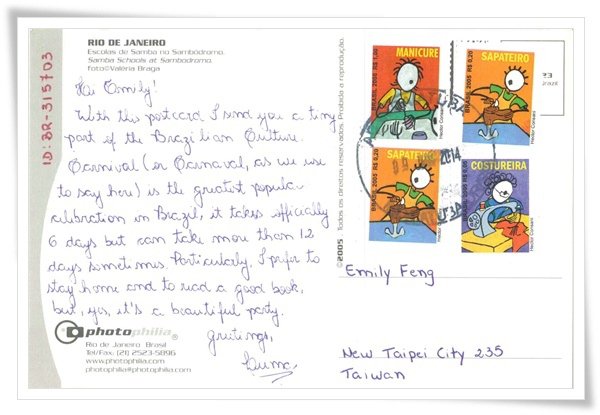 ID: BR-315703
RIO DE JANEIRO
Escolas de Samba no Sambódromo.
Samba Schools at Sambodromo.
foto©Valéria Braga
Hi Emily!
With this postcard I send you a tiny
part of the Brazilian Culture.
Carnival (or Carnaval, as we use
to say here) is the greatest popular
celibration in Brazil, it takes officially
6 days but can take more than 12
days sometimes. Particularly, I prefer to
stay home and to read a good book,
but, yes, it's a beautiful party.
gretings,
photophilia®
Rio de Janeiro Brasil
Tel/Fax: (21) 2523-5896
www.photophilia.com
photophilia@photophilia.com
©2005 Todos os direitos reservados. Proibida a reprodução.
MANICURE
BRASIL 2005 R$ 1,00
SAPATEIRO
BRASIL 2005 R$ 0,20
Hector Consani
SAPATEIRO
BRASIL 2005 R$ 0,20
Hector Consani
COSTUREIRA
BRASIL 2005
Hector Consani
2014
23
Emily Feng
New Taipei City 235
Taiwan